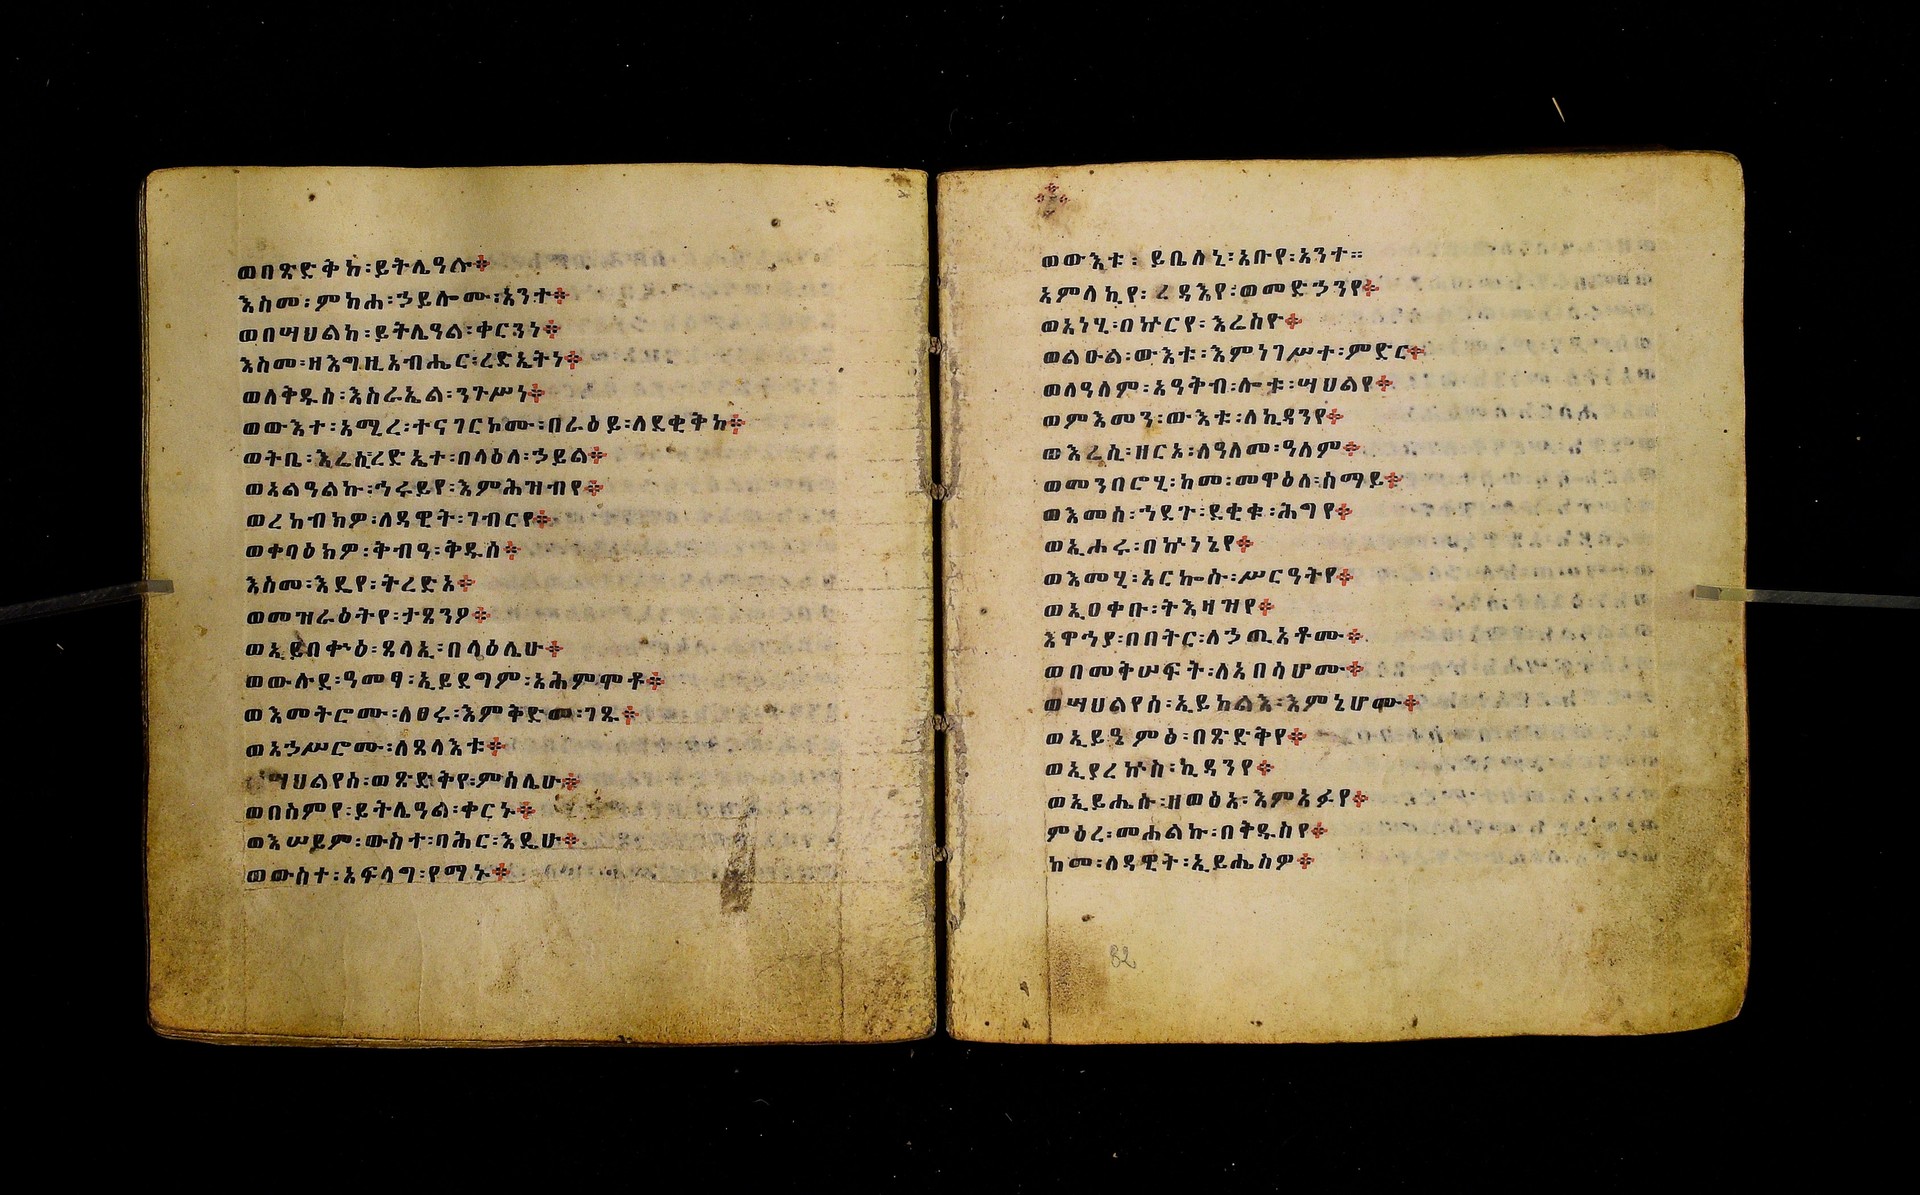 ወበጽድቅከ፡ይትሌዓሉ፨
እስመ፡ምክሐ፡ኃይሎሙ፡አንተ፨
ወበሣህልከ፡ይትሌዓል፡ቀርንነ፨
እስመ፡ዘእግዚአብሔር፡ረድኤትነ፨
ወለቅዱስ፡እስራኤል፡ንጉሥነ፨
ወውእተ፡አሚረ፡ተናገርኮሙ፡በራዕይ፡ለደቂቅከ፨
ወትቤ፡እሬሲ፡ረድኤተ፡በላዕለ፡ኃይል፨
ወአልዓልኩ፡ኅሩይየ፡እምሕዝብየ፨
ወረከብክዎ፡ለዳዊት፡ገብርየ፨
ወቀባዕክዎ፡ቅብዓ፡ቅዱስ፨
እስመ፡እዴየ፡ትረድአ፨
ወመዝራዕትየ፡ታጸንዖ፨
ወኢይበቍዕ፡ጸላኢ፡በላዕሌሁ፨
ወውሉደ፡ዓመፃ፡ኢይደግም፡አሕምሞቶ፨
ወእመትሮሙ፡ለፀሩ፡እምቅድመ፡ገጹ፨
ወአኃሥሮሙ፡ለጸላእቱ፨
ሣህልየሰ፡ወጽድቅየ፡ምስሌሁ፨
ወበስምየ፡ይትሌዓል፡ቀርኑ፨
ወእሠይም፡ውስተ፡ባሕር፡እዴሁ፨
ወውስተ፡አፍላግ፡የማኑ፨
ወውእቱ፡ይቤለኒ፡አቡየ፡አንተ።
አምላኪየ፡ረዳእየ፡ወመድኃንየ፨
ወአነሂ፡በኵርየ፡እሬስዮ፨
ወልዑል፡ውእቱ፡እምነገሥተ፡ምድር፨
ወለዓለም፡አዓቅብ፡ሎቱ፡ሣህልየ፨
ወምእመን፡ውእቱ፡ለኪዳንየ፨
ወእሬሲ፡ዘርአ፡ለዓለመ፡ዓለም፨
ወመንበሮሂ፡ከመ፡መዋዕለ፡ሰማይ፨
ወእመሰ፡ኀደጉ፡ደቂቁ፡ሕግየ፨
ወኢሐሩ፡በኵነኔየ፨
ወእመሂ፡አርኰሱ፡ሥርዓትየ፨
ወኢዐቀቡ፡ትእዛዝየ፨
እዋኅያ፡በበትር፡ለኃጢአቶሙ፨
ወበመቅሠፍት፡ለአበሳሆሙ፨
ወሣህልየሰ፡ኢይከልእ፡እምኔሆሙ፨
ወኢይዔምፅ፡በጽድቅየ፨
ወኢያረኵስ፡ኪዳንየ፨
ወኢይሔሱ፡ዘወፅአ፡እምአፉየ፨
ምዕረ፡መሐልኩ፡በቅዱስየ፨
ከመ፡ለዳዊት፡ኢይሔስዎ፨
82